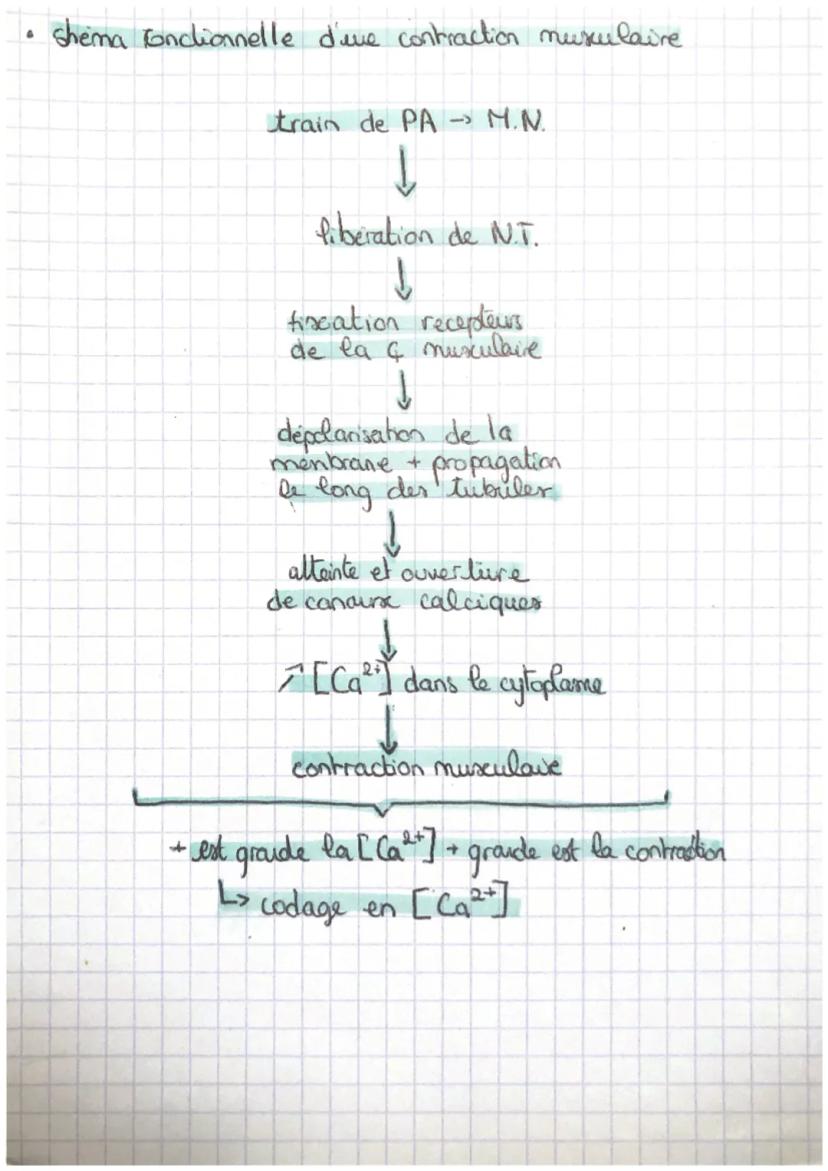 • shéma fonctionnelle d'une contraction musculaire
train de PA → M.N.
↓
libération de N.T.
↓
fixation recepteurs
de la ç musculaire
↓
dépolarisation de la
menbrane + propagation
le long des tubules
↓
atteinte et ouverture
de canaux calciques
↓
↗ [Ca²⁺] dans le cytoplasme
↓
contraction musculaire
+ est grande la [Ca²⁺] + grande est la contraction
↳ codage en [Ca²⁺]